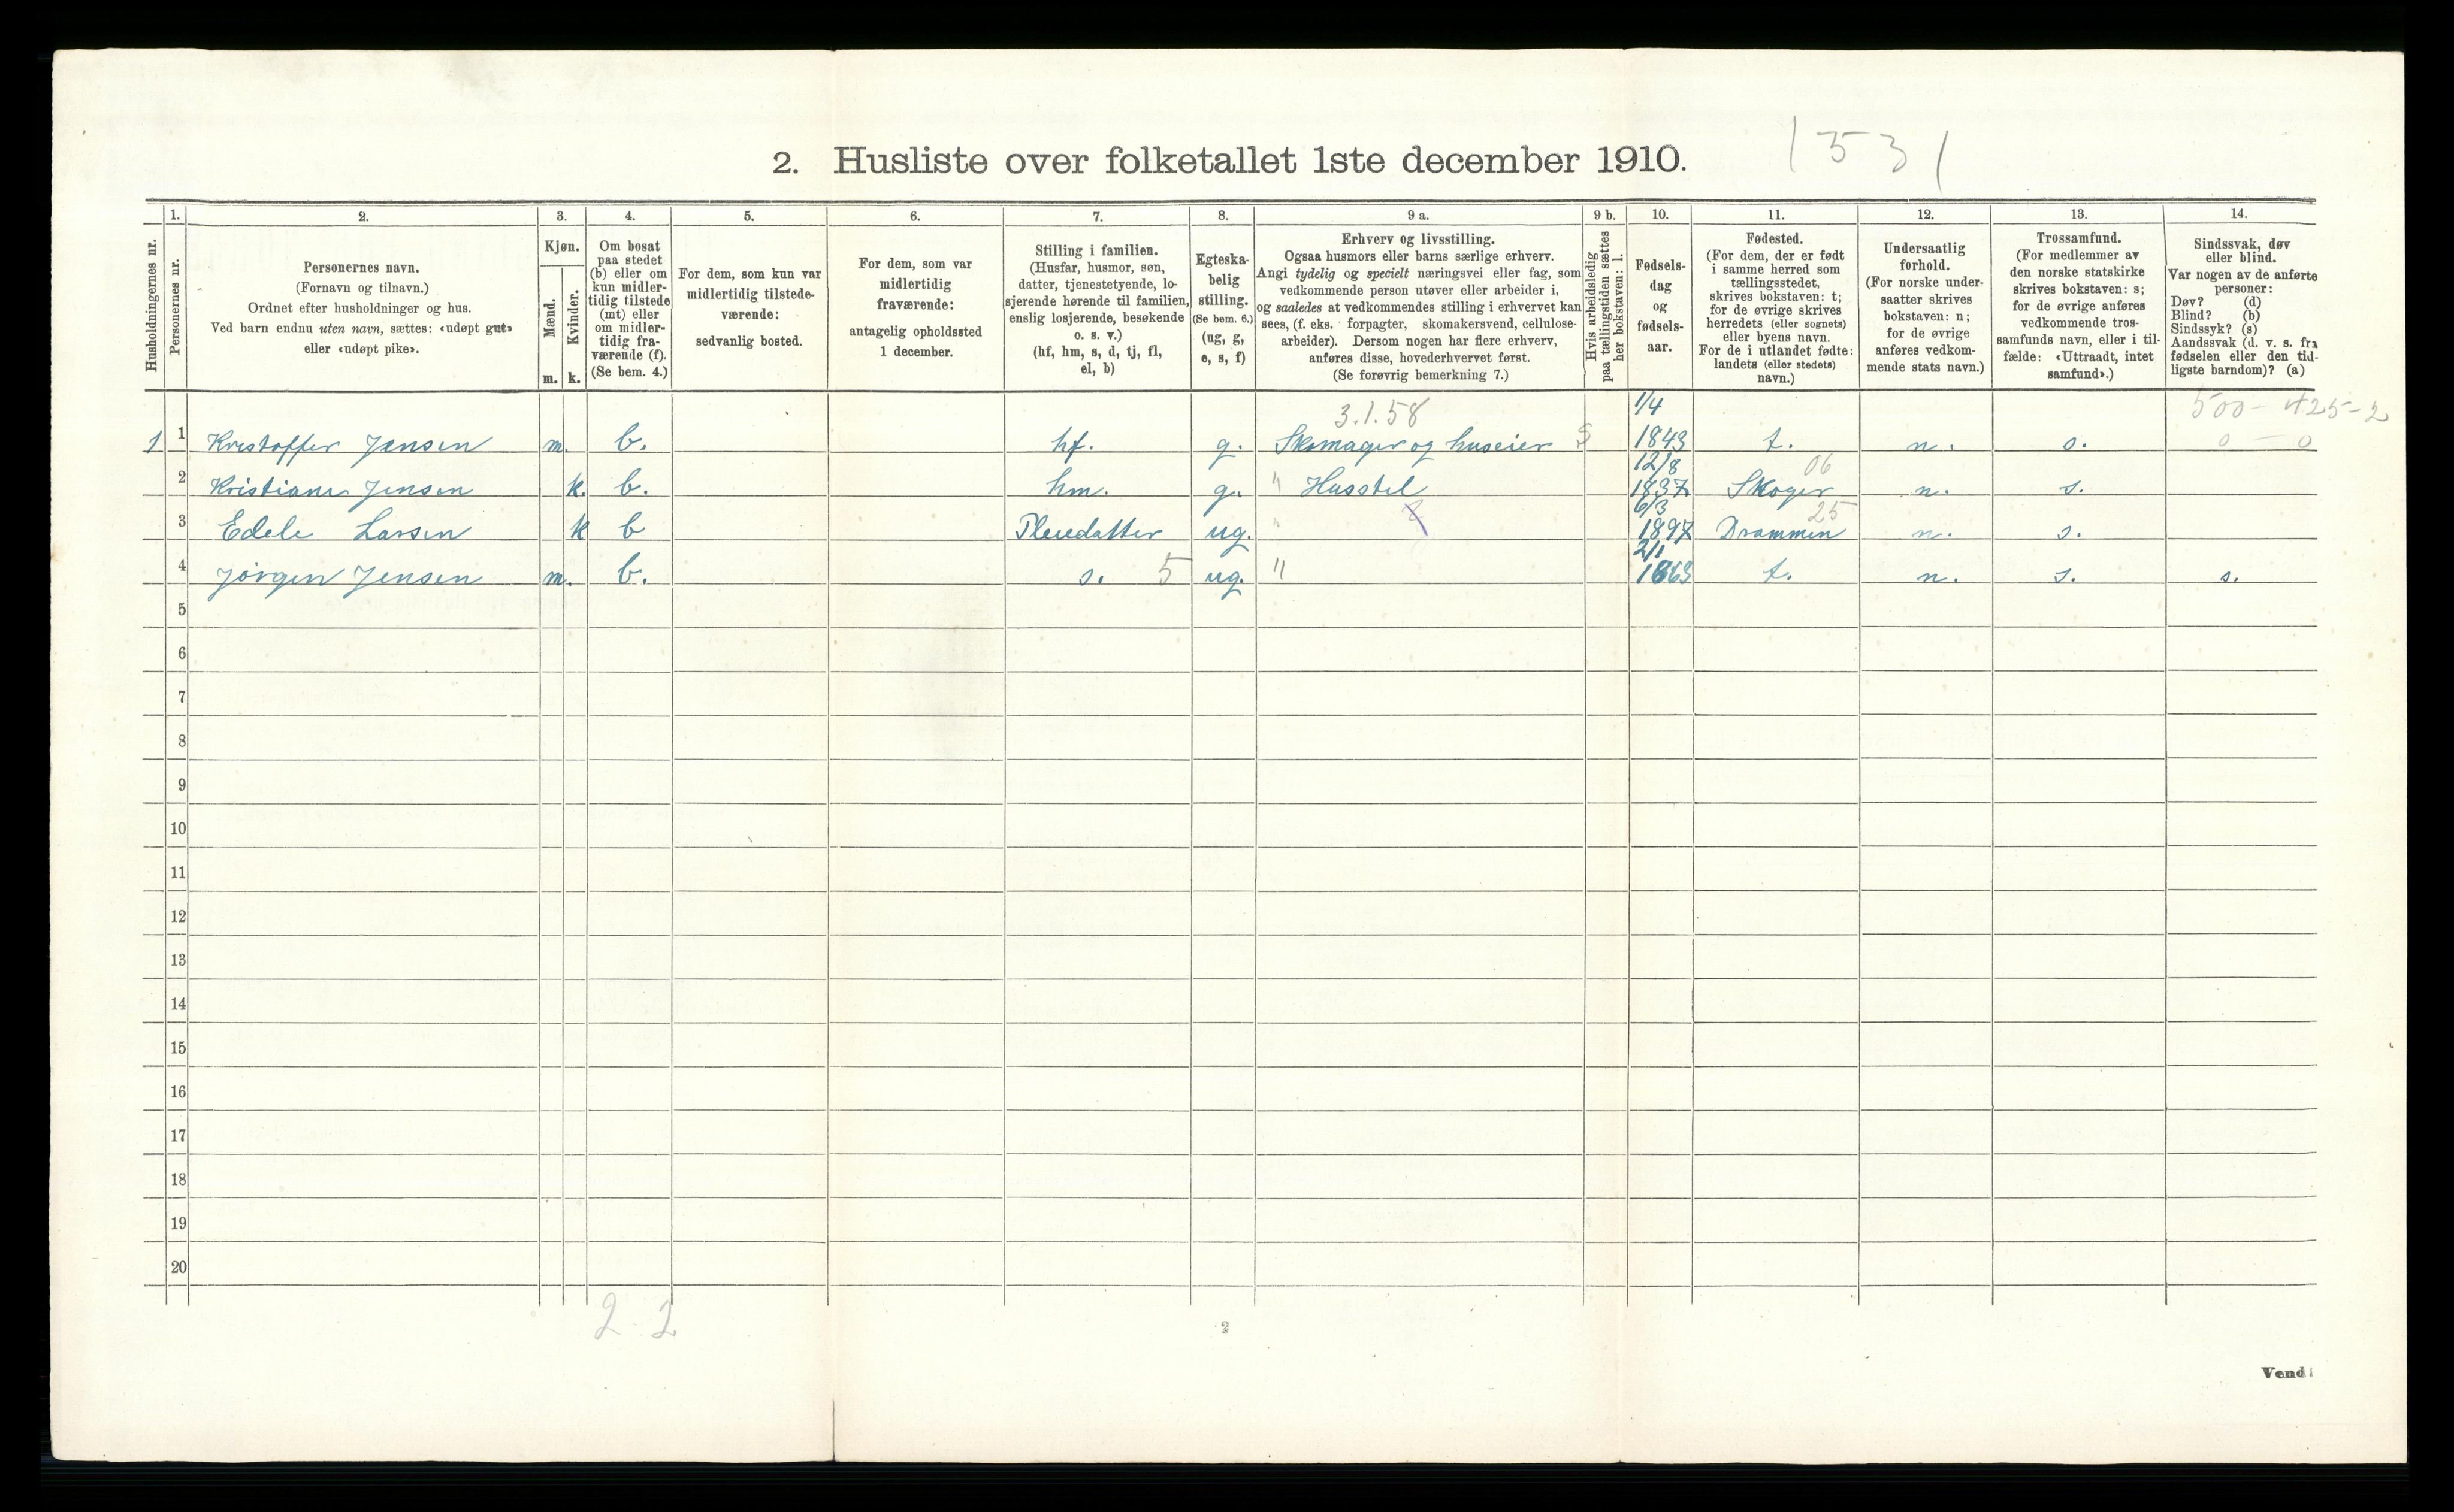 2. Husliste over folketallet 1ste december 1910.
1531
Husholdningernes nr.
1.
Personernes nr.
2.
Personernes navn.
(Fornavn og tilnavn.)
Ordnet efter husholdninger og hus.
Ved barn endnu uten navn, sættes: «udøpt gut»
eller «udøpt pike».
3.
Kjøn.
Mænd.
m.
Kvinder.
k.
4.
Om bosat
paa stedet
(b) eller om
kun midler-
tidig tilstede
(mt) eller
om midler-
tidig fra-
værende (f).
(Se bem. 4.)
5.
For dem, som kun var
midlertidig tilstede-
værende:
sedvanlig bosted.
6.
For dem, som var
midlertidig
fraværende:
antagelig opholdssted
1 december.
7.
Stilling i familien.
(Husfar, husmor, søn,
datter, tjenestetyende, lo-
sjerende hørende til familien,
enslig losjerende, besøkende
o. s. v.)
(hf, hm, s, d, tj, fl,
el, b)
8.
Egteska-
belig
stilling.
(Se bem. 6.)
(ug, g,
e, s, f)
9 a.
Erhverv og livsstilling.
Ogsaa husmors eller barns særlige erhverv.
Angi tydelig og specielt næringsvei eller fag, som
vedkommende person utøver eller arbeider i,
og saaledes at vedkommendes stilling i erhvervet kan
sees, (f. eks. forpagter, skomakersvend, cellulose-
arbeider). Dersom nogen har flere erhverv,
anføres disse, hovederhvervet først.
(Se forøvrig bemerkning 7.)
9 b.
Hvis arbeidsledig
paa tællingstiden sættes
her bokstaven: l.
10.
Fødsels-
dag
og
fødsels-
aar.
11.
Fødested.
(For dem, der er født
i samme herred som
tællingsstedet,
skrives bokstaven: t;
for de øvrige skrives
herredets (eller sognets)
eller byens navn.
For de i utlandet fødte:
landets (eller stedets)
navn.)
12.
Undersaatlig
forhold.
(For norske under-
saatter skrives
bokstaven: n;
for de øvrige
anføres vedkom-
mende stats navn.)
13.
Trossamfund.
(For medlemmer av
den norske statskirke
skrives bokstaven: s;
for de øvrige anføres
vedkommende tros-
samfunds navn, eller i til-
fælde: «Uttraadt, intet
samfund».)
14.
Sindssvak, døv
eller blind.
Var nogen av de anførte
personer:
Døv? (d)
Blind? (b)
Sindssyk? (s)
Aandssvak (d. v. s. fra
fødselen eller den tid-
ligste barndom)? (a)
3.1.58 1/4 500-425-2
1 1 Kristoffer Jensen m. b. hf. g. Skomager og huseier 1843 t. n. s. 0 - 0
12/8 06
2 Kristiane Jensen k. b. hm. g. " Husstel 1837 Skoger n. s.
6/3 25
3 Edele Larsen k b Pleiedatter ug. " 1897 Drammen n. s.
2/1
4 Jörgen Jensen m. b. s. 5 ug. " 1863 t. n. s. s.
5
6
7
8
9
10
11
12
13
14
15
16
17
18
19
20
2 2
2
Vend!